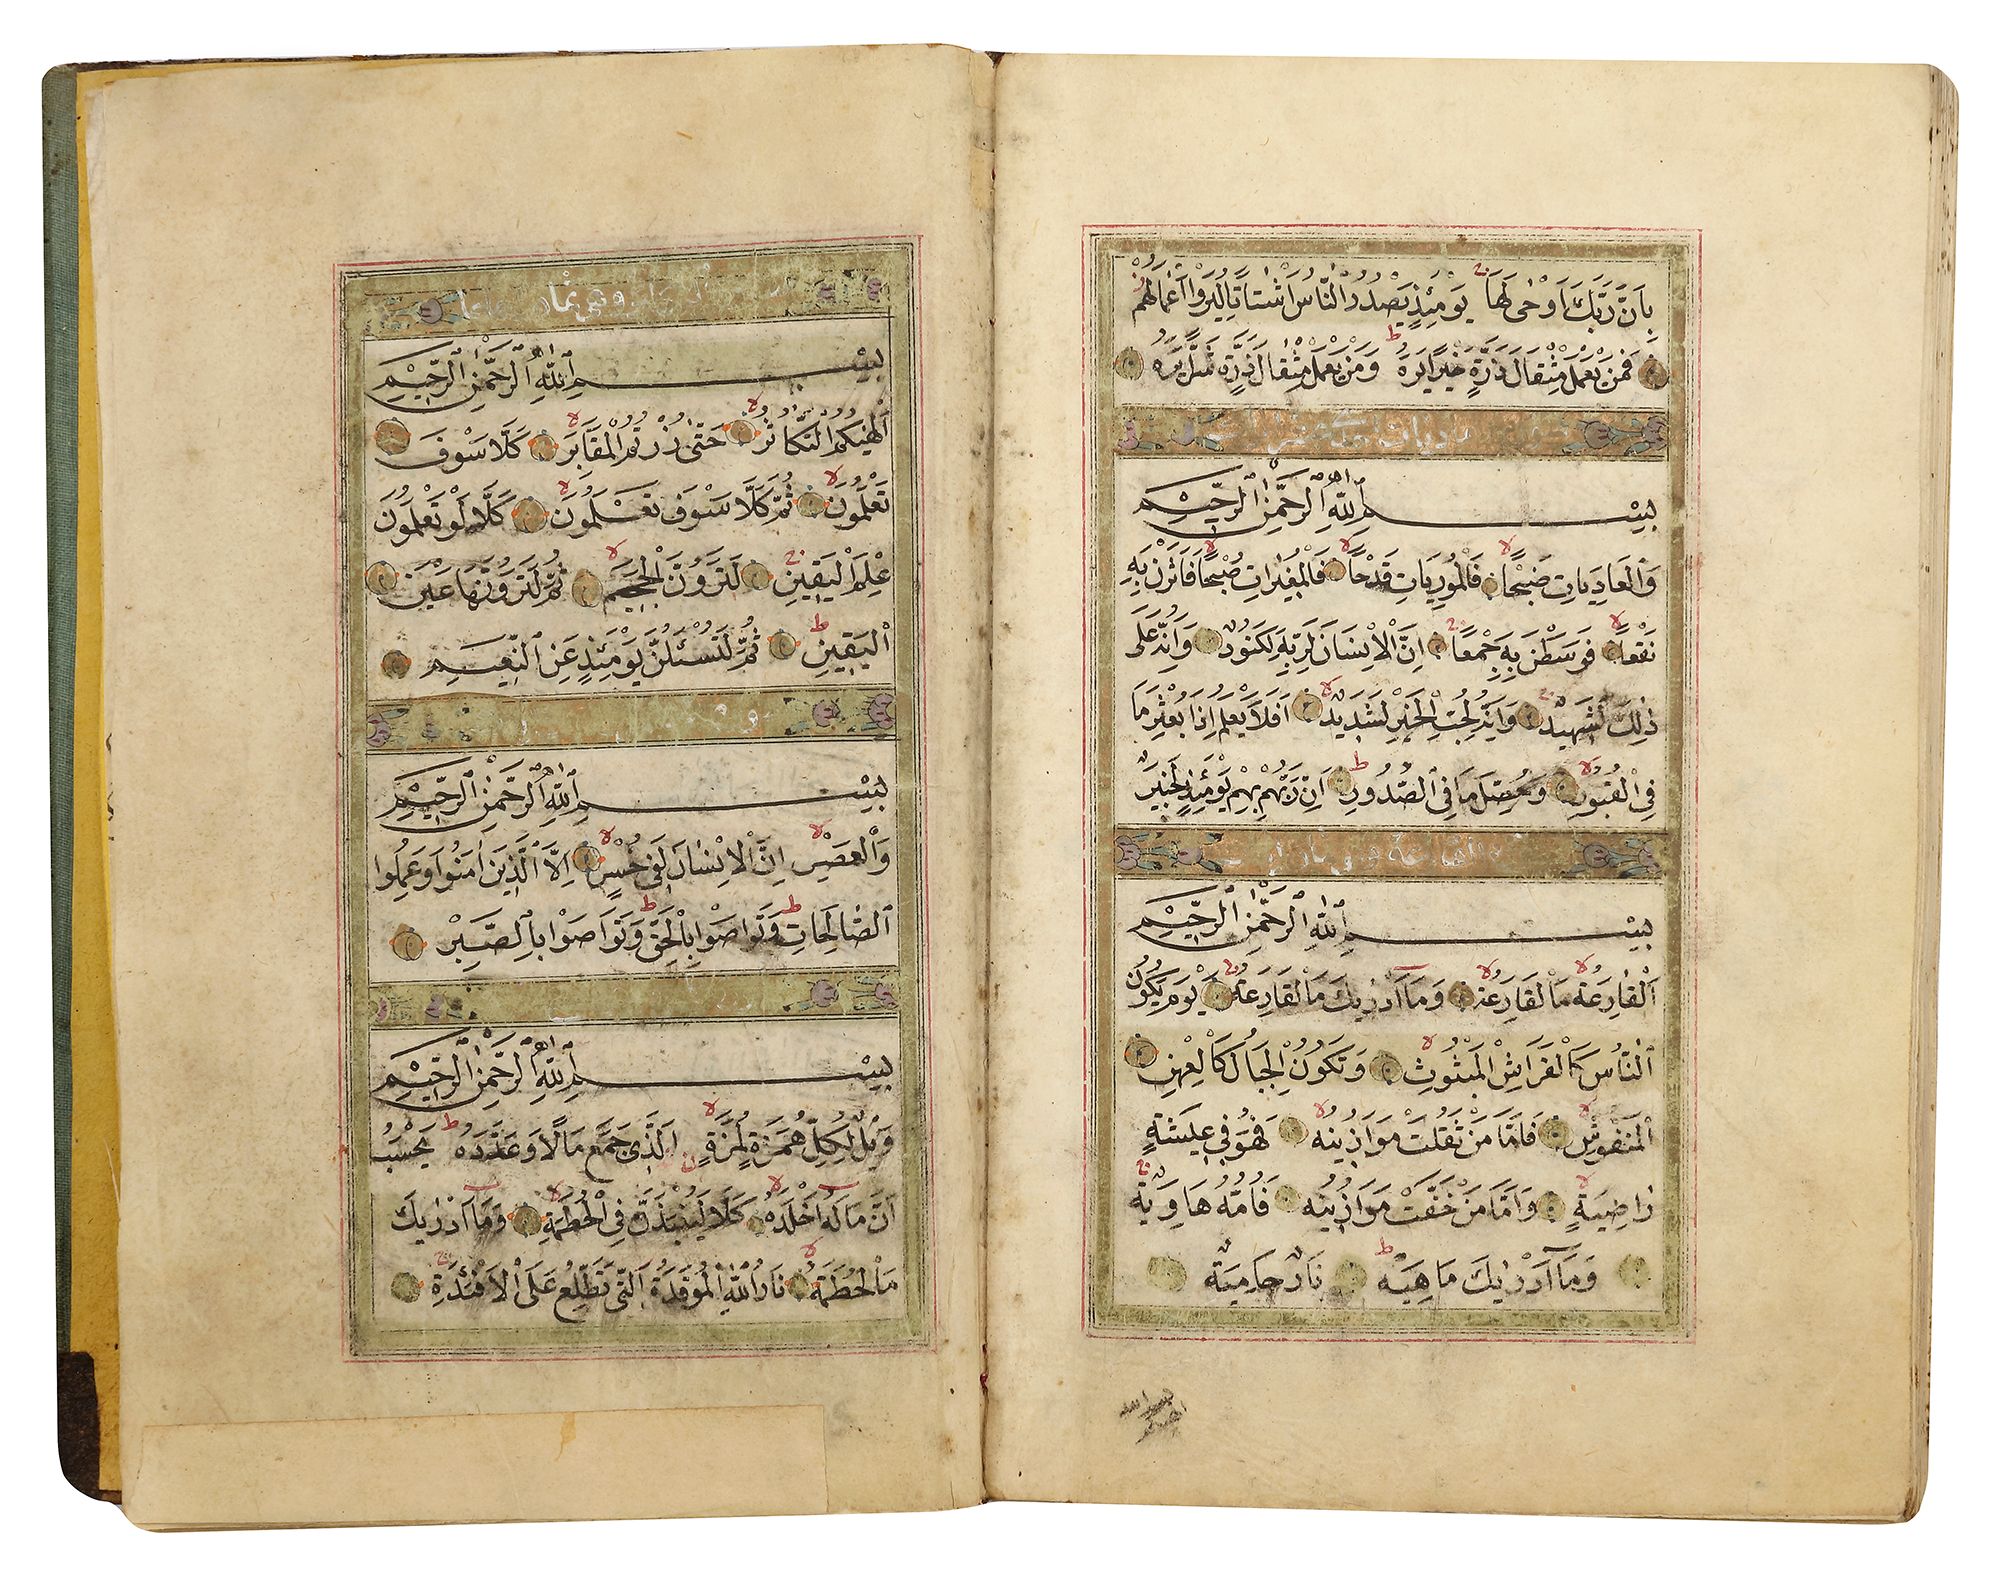 بِاَنَّ رَبَّكَ اَوْحٰى لَهَا يَوْمَئِذٍ يَصْدُرُ النَّاسُ اَشْتَاتًا لِيُرَوْا اَعْمَالَهُمْ
فَمَنْ يَعْمَلْ مِثْقَالَ ذَرَّةٍ خَيْرًا يَرَهُ وَمَنْ يَعْمَلْ مِثْقَالَ ذَرَّةٍ شَرًّا يَرَهُ
بِسْمِ اللّٰهِ الرَّحْمٰنِ الرَّحِيْمِ
وَالْعَادِيَاتِ ضَبْحًا فَالْمُورِيَاتِ قَدْحًا فَالْمُغِيْرَاتِ صُبْحًا فَاَثَرْنَ بِهِ
نَقْعًا فَوَسَطْنَ بِهِ جَمْعًا اِنَّ الْاِنْسَانَ لِرَبِّهِ لَكَنُودٌ وَاِنَّهُ عَلٰى
ذٰلِكَ لَشَهِيْدٌ وَاِنَّهُ لِحُبِّ الْخَيْرِ لَشَدِيْدٌ اَفَلَا يَعْلَمُ اِذَا بُعْثِرَ مَا
فِى الْقُبُورِ وَحُصِّلَ مَا فِى الصُّدُورِ اِنَّ رَبَّهُمْ بِهِمْ يَوْمَئِذٍ لَخَبِيْرٌ
بِسْمِ اللّٰهِ الرَّحْمٰنِ الرَّحِيْمِ
اَلْقَارِعَةُ مَا الْقَارِعَةُ وَمَا اَدْرٰيكَ مَا الْقَارِعَةُ يَوْمَ يَكُونُ
النَّاسُ كَالْفَرَاشِ الْمَبْثُوثِ وَتَكُونُ الْجِبَالُ كَالْعِهْنِ
الْمَنْفُوشِ فَاَمَّا مَنْ ثَقُلَتْ مَوَازِينُهُ فَهُوَ فِى عِيشَةٍ
رَاضِيَةٍ وَاَمَّا مَنْ خَفَّتْ مَوَازِينُهُ فَاُمُّهُ هَاوِيَةٌ
وَمَا اَدْرٰيكَ مَا هِيَهْ نَارٌ حَامِيَةٌ
بِسْمِ اللّٰهِ الرَّحْمٰنِ الرَّحِيْمِ
اَلْهٰيكُمُ التَّكَاثُرُ حَتّٰى زُرْتُمُ الْمَقَابِرَ كَلَّا سَوْفَ
تَعْلَمُونَ ثُمَّ كَلَّا سَوْفَ تَعْلَمُونَ كَلَّا لَوْ تَعْلَمُونَ
عِلْمَ الْيَقِيْنِ لَتَرَوُنَّ الْجَحِيْمَ ثُمَّ لَتَرَوُنَّهَا عَيْنَ
الْيَقِيْنِ ثُمَّ لَتُسْئَلُنَّ يَوْمَئِذٍ عَنِ النَّعِيْمِ
بِسْمِ اللّٰهِ الرَّحْمٰنِ الرَّحِيْمِ
وَالْعَصْرِ اِنَّ الْاِنْسَانَ لَفِى خُسْرٍ اِلَّا الَّذِيْنَ اٰمَنُوا وَعَمِلُوا
الصَّالِحَاتِ وَتَوَاصَوْا بِالْحَقِّ وَتَوَاصَوْا بِالصَّبْرِ
بِسْمِ اللّٰهِ الرَّحْمٰنِ الرَّحِيْمِ
وَيْلٌ لِكُلِّ هُمَزَةٍ لُمَزَةٍ اَلَّذِى جَمَعَ مَالًا وَعَدَّدَهُ يَحْسَبُ
اَنَّ مَالَهُ اَخْلَدَهُ كَلَّا لَيُنْبَذَنَّ فِى الْحُطَمَةِ وَمَا اَدْرٰيكَ
مَا الْحُطَمَةُ نَارُ اللّٰهِ الْمُوقَدَةُ اَلَّتِى تَطَّلِعُ عَلَى الْاَفْئِدَةِ